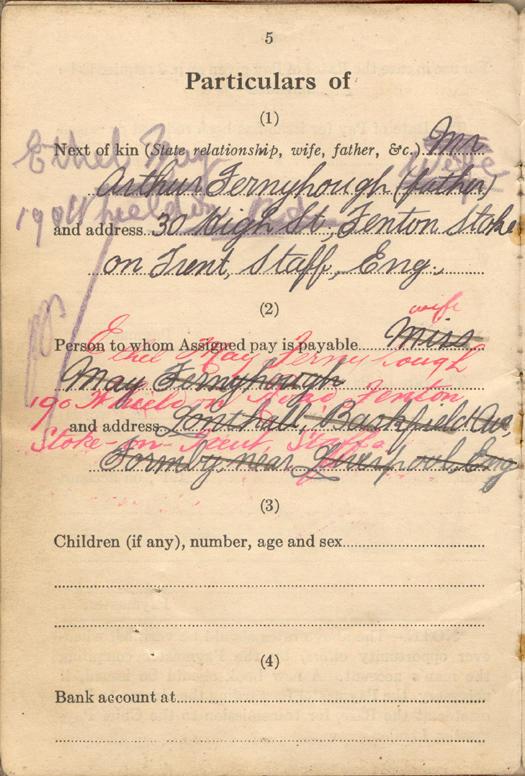 5
Particulars of
(1)
Next of kin (State relationship, wife, father, &c.) Mr.
Ethel May
wife
Arthur Fernyhough (father)
190 Wheeldon Rd.
and address 30 High St., Fenton Stoke
on Trent, Staff, Eng.
(2)
wife
Person to whom Assigned pay is payable Miss
Ethel May Fernyhough
May Fernyhough
190 Wheeldon Road, Fenton
and address, Backfield Av.
Stoke-on-Trent Staffs.
Formby, near Liverpool, Eng
(3)
Children (if any), number, age and sex
(4)
Bank account at